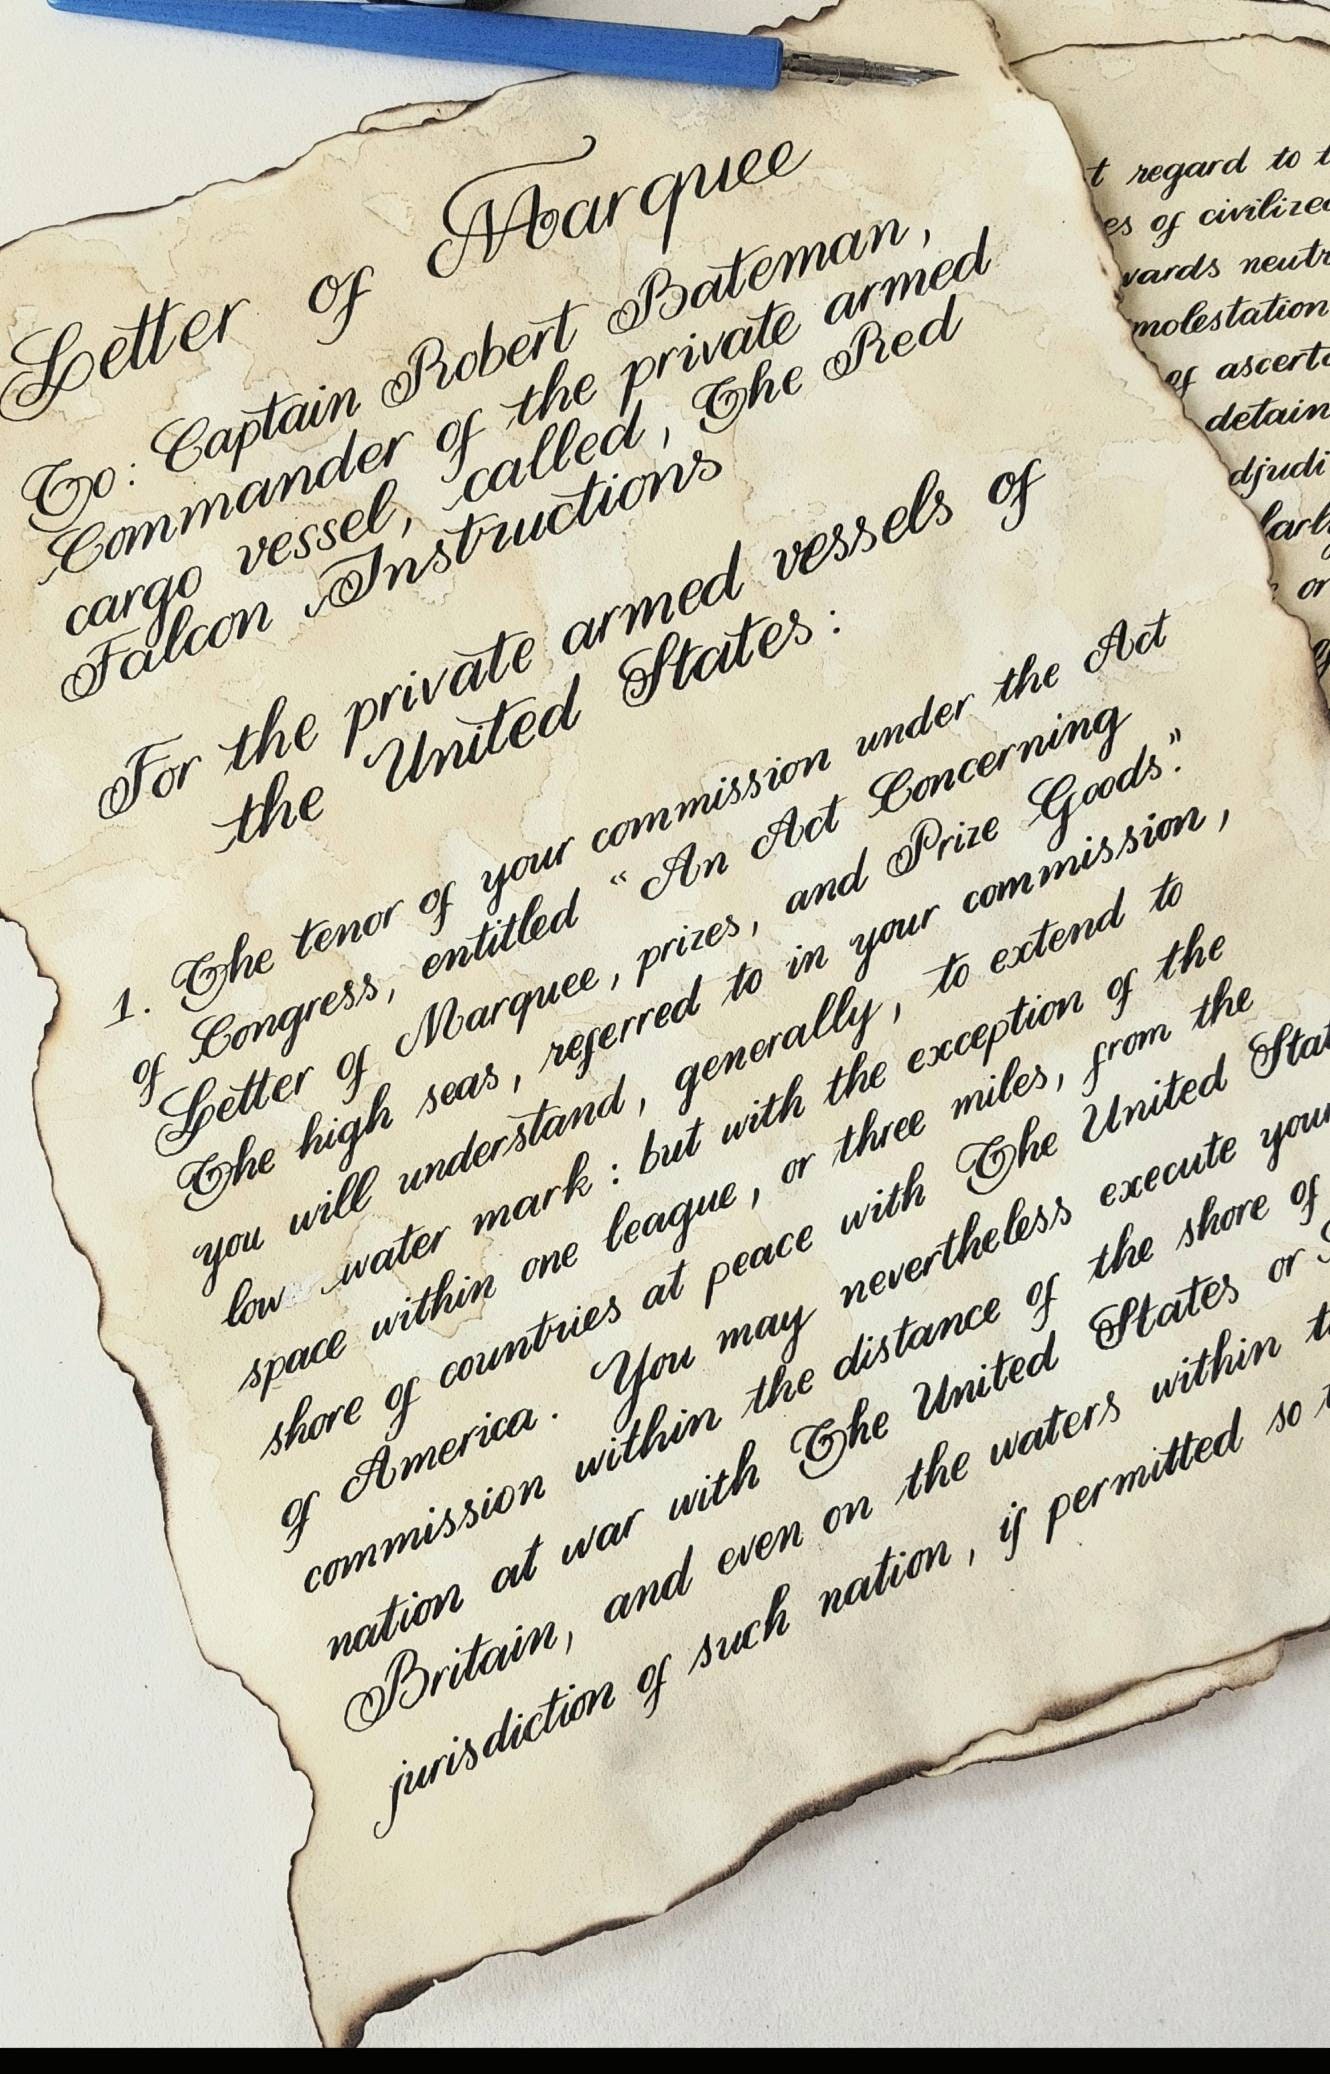 Letter of Marquee
To: Captain Robert Bateman,
Commander of the private armed
cargo vessel, called, The Red
Falcon Instructions
For the private armed vessels of
the United States:
1. The tenor of your commission under the Act
of Congress, entitled “An Act Concerning
Letter of Marquee, prizes, and Prize Goods”.
The high seas, referred to in your commission,
you will understand, generally, to extend to
low water mark: but with the exception of the
space within one league, or three miles, from the
shore of countries at peace with The United Stat
of America. You may nevertheless execute your
commission within the distance of the shore of
nation at war with The United States or
Britain, and even on the waters within t
jurisdiction of such nation, if permitted so t
t regard to t
es of civilized
wards neutr
molestation
of ascerta
detain
djudi
larly
or